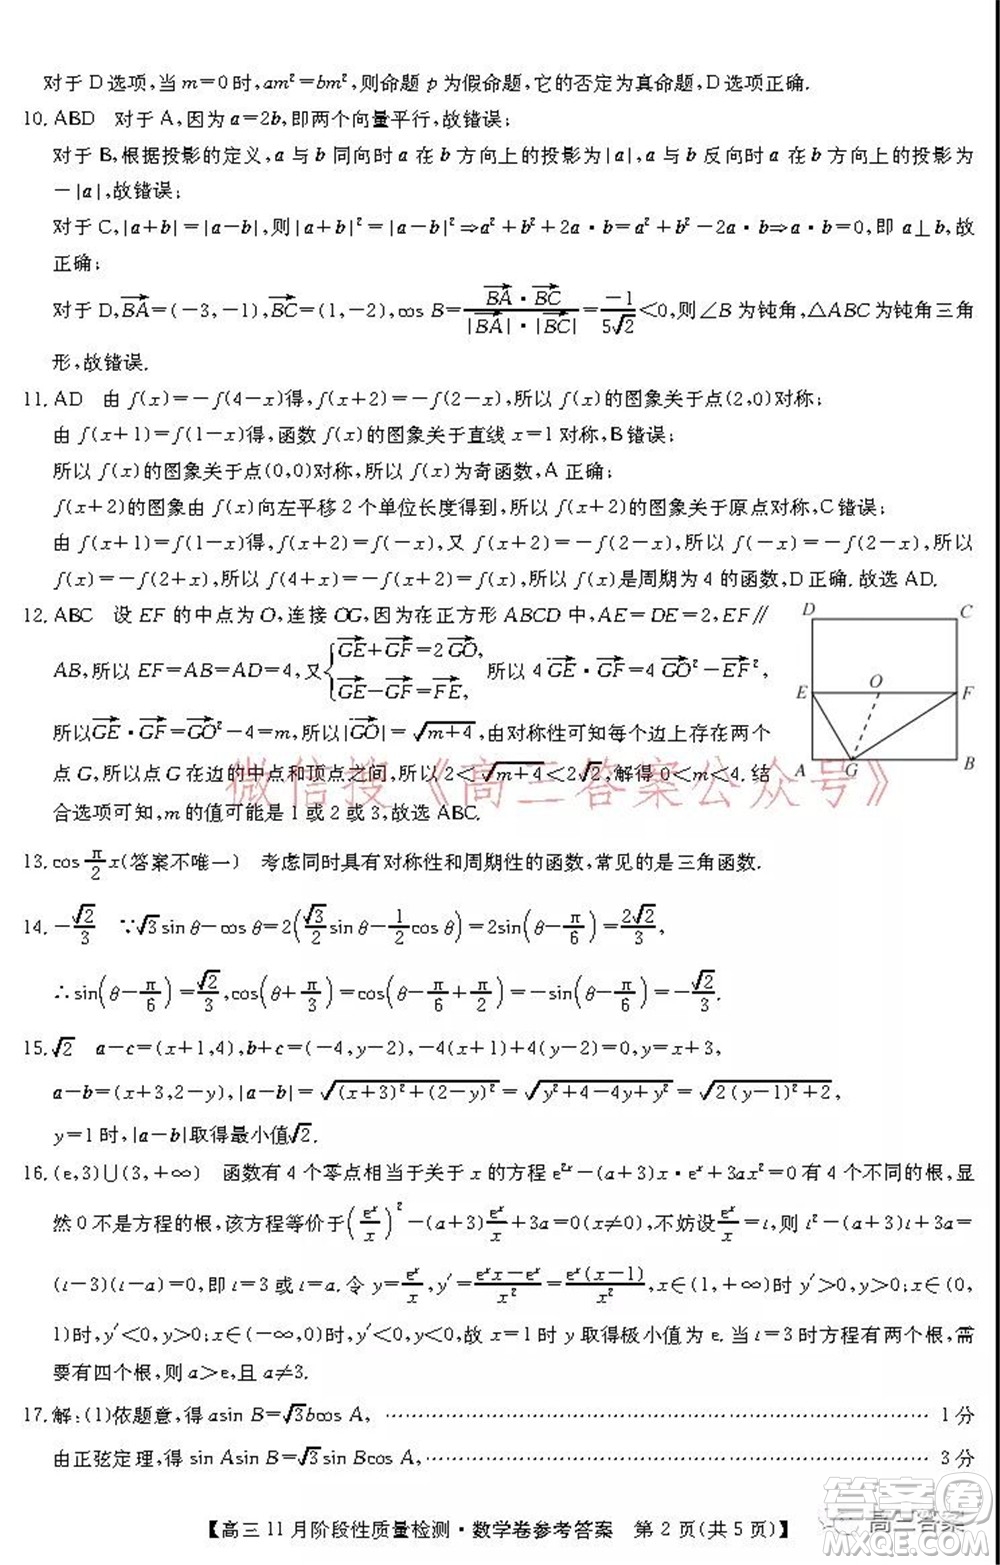 对于 D 选项,当 m=0 时,am²=bm²,则命题 p 为假命题,它的否定为真命题,D 正确.
10. ABD 对于 A,因为 a=2b,即两个向量平行,故错误;
对于 B,根据投影的定义,a 与 b 同向时 a 在 b 方向上的投影为|a|,a 与 b 反向时 a 在 b 方向上的投影为
-|a|,故错误;
对于 C,|a+b|=|a-b|,则|a+b|²=|a-b|²⇒a²+b²+2a·b=a²+b²-2a·b⇒a·b=0,即 a⊥b,故
正确;
对于 D,\overrightarrow{BA}=(-3,-1),\overrightarrow{BC}=(1,-2),cos B=\frac{\overrightarrow{BA}·\overrightarrow{BC}}{|\overrightarrow{BA}|·|\overrightarrow{BC}|}=\frac{-1}{5√2}<0,则∠B 为钝角,△ABC 为钝角三角
形,故错误.
11. AD 由 f(x)=-f(4-x)得,f(x+2)=-f(2-x),所以 f(x)的图象关于点(2,0)对称;
由 f(x+1)=f(1-x)得,函数 f(x)的图象关于直线 x=1 对称,B 错误;
所以 f(x)的图象关于点(0,0)对称,所以 f(x)为奇函数,A 正确;
f(x+2)的图象由 f(x)向左平移 2 个单位长度得到,所以 f(x+2)的图象关于原点对称,C 错误;
由 f(x+1)=f(1-x)得,f(x+2)=f(-x),又 f(x+2)=-f(2-x),所以 f(-x)=-f(2-x),所以
f(x)=-f(2+x),所以 f(4+x)=-f(x+2)=f(x),所以 f(x)是周期为 4 的函数,D 正确.故选 AD.
12. ABC 设 EF 的中点为 O,连接 OG,因为在正方形 ABCD 中,AE=DE=2,EF∥
AB,所以 EF=AB=AD=4,又{\overrightarrow{GE}+\overrightarrow{GF}=2\overrightarrow{GO}, \overrightarrow{GE}-\overrightarrow{GF}=\overrightarrow{FE}, 所以 4\overrightarrow{GE}·\overrightarrow{GF}=4\overrightarrow{GO}²-\overrightarrow{EF}²,
所以\overrightarrow{GE}·\overrightarrow{GF}=\overrightarrow{GO}²-4=m,所以|\overrightarrow{GO}|=√(m+4),由对称性可知每边上存在两个
点 G,所以点 G 在边的中点和顶点之间,所以 2<√(m+4)<2√2,解得 0<m<4,结
合选项可知,m 的值可能是 1 或 2 或 3,故选 ABC.
D C
E O F
A G B
微信搜《高三答案公众号》
13. cos\frac{π}{2}x(答案不唯一) 考虑同时具有对称性和周期性的函数,常见的是三角函数.
14. -\frac{√2}{3} ∵√3sin θ-cos θ=2(\frac{√3}{2}sin θ-\frac{1}{2}cos θ)=2sin(θ-\frac{π}{6})=\frac{2√2}{3},
∴sin(θ-\frac{π}{6})=\frac{√2}{3},cos(θ+\frac{π}{3})=cos(θ-\frac{π}{6}+\frac{π}{2})=-sin(θ-\frac{π}{6})=-\frac{√2}{3}.
15. √2 a-c=(x+1,4),b+c=(-4,y-2),-4(x+1)+4(y-2)+8=0,y=x+3,
a-b=(x+3,2-y),|a-b|=√((x+3)²+(2-y)²)=√(y²+4-4y+y²)=√(2(y-1)²+2),
y=1 时,|a-b|取得最小值√2.
16. (e,3)∪(3,+∞) 函数有 4 个零点相当于关于 x 的方程 e^{2x}-(a+3)x·e^x+3ax²=0 有 4 个不同的根,显
然 0 不是方程的根,该方程等价于(\frac{e^x}{x})²-(a+3)\frac{e^x}{x}+3a=0(x≠0),不妨设\frac{e^x}{x}=t,则 t²-(a+3)t+3a=
(t-3)(t-a)=0,即 t=3 或 t=a.令 y=\frac{e^x}{x},y'=\frac{e^x x-e^x}{x²}=\frac{e^x(x-1)}{x²},x∈(1,+∞)时 y'>0,x∈(0,
1)时,y'<0,x∈(-∞,0)时 y'<0,x=1 时 y 取得极小值为 e.当 t=3 时方程有两个根,需
要有四个根,则 a>e,且 a≠3.
17. 解:(1)依题意,得 asin B=√3bcos A, …… 1 分
由正弦定理,得 sin Asin B=√3sin Bcos A, …… 3 分
【高三 11 月阶段性质量检测·数学卷参考答案 第 2 页(共 5 页)】
高三答案
答案圈